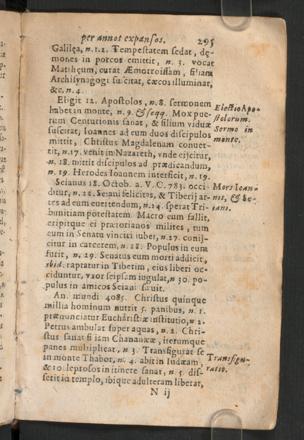 per annot expansos. 295
Galilęa, n. 1. 2. Tempestatem sedat, dę-
mones in porcos emittit, n. 3. vocat
Matthęum, curat Æmorroissam, filiam
Archisynagogi suscitat, cæcos illuminat,
&c. n. 4.
Eligit 12. Apostolos, n. 8. sermonem
habet in monte, n. 9. & seqq. Mox pue-
rum Centurionis sanat, & filium viduæ
suscitat, Ioannes ad eum duos discipulos
mittit, Christus Magdalenam conuer-
tit, n. 17. venit in Nazareth, vnde eijcitur,
n. 18. mittit discipulos ad prædicandum,
n. 19. Herodes Ioannem interficit, n. 19.
Electio Apo-
stolorum.
Sermo in
monte.
Seianus 18. Octob. a. V. C. 783. occi-
ditur, n. 28. Seiani felicitas, & Tiberij ar-
tes ad eum euertendum, n. 24. sperat Tri-
bunitiam potestatem. Macro eum fallit,
eripitque ei prætorianos milites, tum
eum in Senatu vinciri iubet, n. 27. conij-
citur in carcerem, n. 28. Populus in eum
furit, n. 29. Senatus eum morti addicit,
ibid. raptatur in Tiberim, eius liberi oc-
ciduntur, vxor seipsam iugulat, n 30. po-
pulus in amicos Seiani sæuit.
Mors Ioan-
nis, & Se-
iani.
An. mundi 4085. Christus quinque
millia hominum nutrit 5. panibus, n. 1.
prænunciatur Eucharistiæ institutio, n 2.
Petrus ambulat super aquas, n 2. Chri-
stus sanat filiam Chananææ, iterumque
panes multiplicat, n 3. Transfigurat se
in monte Thabor, n. 4. abit in Iudæam,
& 10. leprosos in itinere sanat, n 5. dis-
serit in templo, ibique adulteram liberat,
Transfigu-
ratio.
N ij